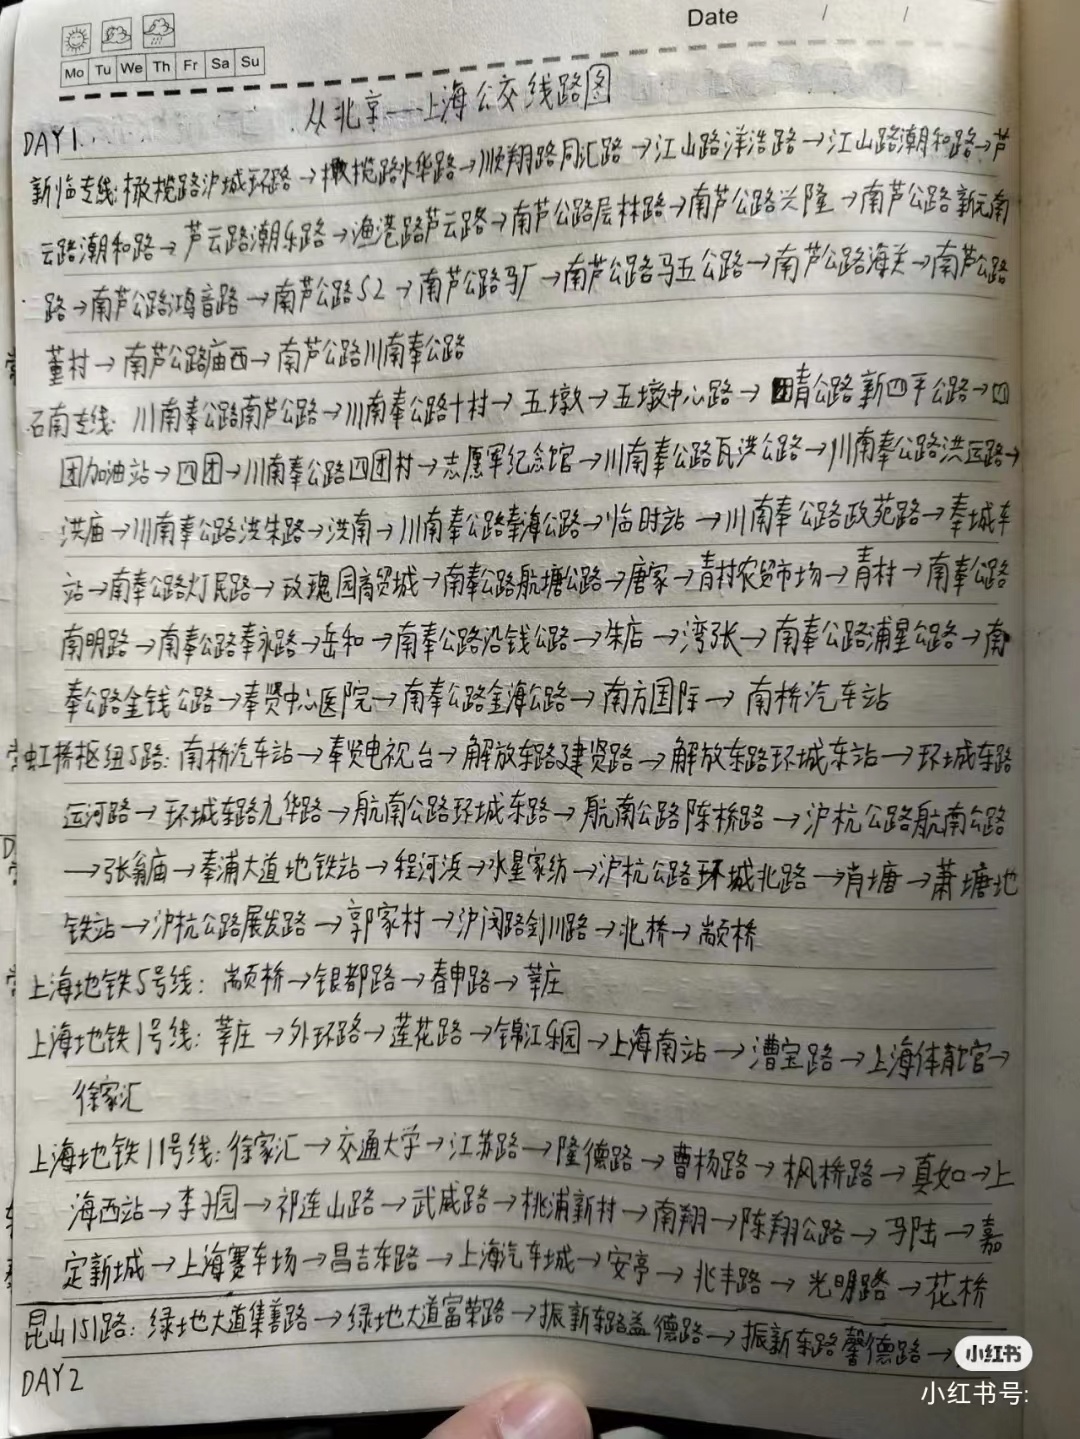 Date / /
Mo Tu We Th Fr Sa Su
从北京——上海公交线路图
DAY1.
新临专线:橄榄路沪城环路→橄榄路水华路→顺翔路同汇路→江山路洋浩路→江山路潮和路→芦
云路潮和路→芦云路潮乐路→渔港路芦云路→南芦公路层林路→南芦公路兴隆→南芦公路新元南
路→南芦公路鸿音路→南芦公路S2→南芦公路马厂→南芦公路马五公路→南芦公路海关→南芦公路
董村→南芦公路庙西→南芦公路川南奉公路
石南专线:川南奉公路南芦公路→川南奉公路十村→五墩→五墩中心路→青公路新四平公路→四
团加油站→四团→川南奉公路四团村→志愿军纪念馆→川南奉公路瓦洪公路→川南奉公路洪运路→
洪庙→川南奉公路洪朱路→洪南→川南奉公路奉海公路→临时站→川南奉公路政苑路→奉城车
站→南奉公路灯民路→玫瑰园商贸城→南奉公路航塘公路→唐家→青村农贸市场→青村→南奉公路
南明路→南奉公路奉永路→岳和→南奉公路沿钱公路→朱店→湾张→南奉公路浦星公路→南
奉公路金钱公路→奉贤中心医院→南奉公路金海公路→南方国际→南桥汽车站
虹桥枢纽5路:南桥汽车站→奉贤电视台→解放东路建贤路→解放东路环城东站→环城东路
运河路→环城东路九华路→航南公路环城东路→航南公路陈桥路→沪杭公路航南公路
→张翁庙→奉浦大道地铁站→程河浜→水星家纺→沪杭公路环城北路→肖塘→萧塘地
铁站→沪杭公路展发路→郭家村→沪闵路剑川路→北桥→颛桥
上海地铁5号线:颛桥→银都路→春申路→莘庄
上海地铁1号线:莘庄→外环路→莲花路→锦江乐园→上海南站→漕宝路→上海体育馆→
徐家汇
上海地铁11号线:徐家汇→交通大学→江苏路→隆德路→曹杨路→枫桥路→真如→上
海西站→李子园→祁连山路→武威路→桃浦新村→南翔→陈翔公路→马陆→嘉
定新城→上海赛车场→昌吉东路→上海汽车城→安亭→兆丰路→光明路→花桥
昆山151路:绿地大道集善路→绿地大道富荣路→振新东路益德路→振新东路馨德路→
DAY2
小红书
小红书号: